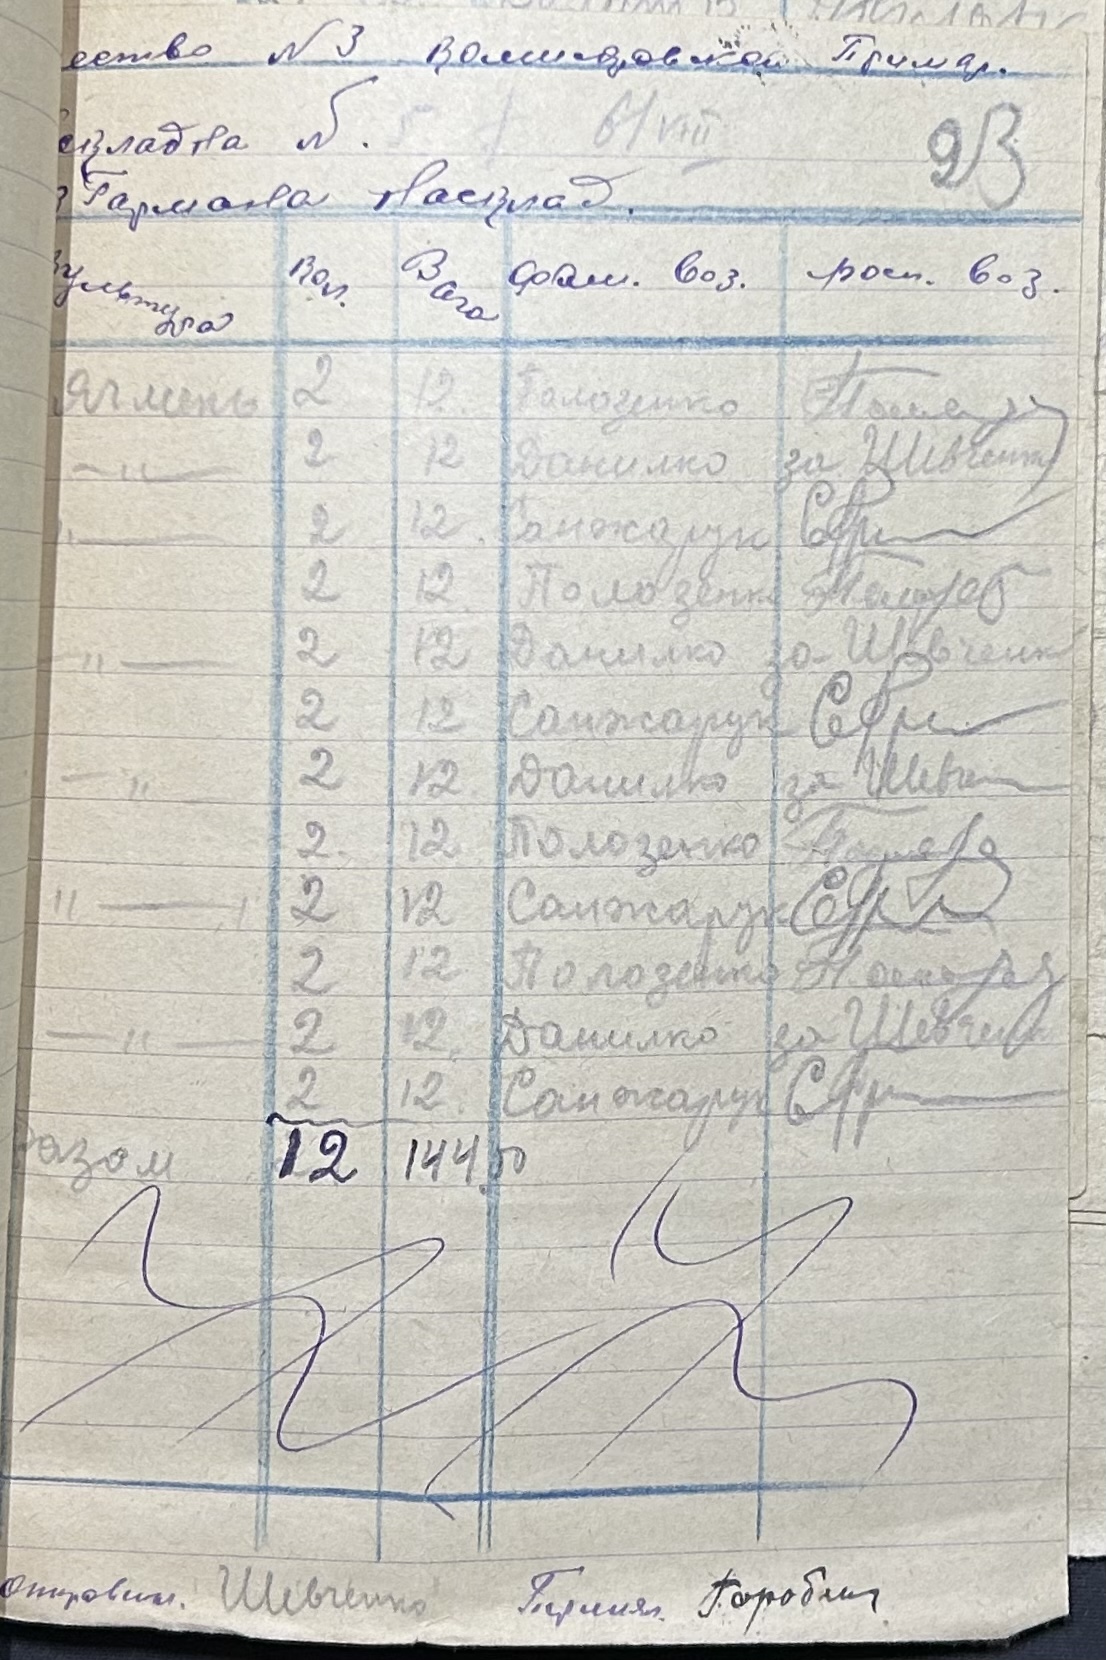 ество №3 Примар.
складна №. 5 6/VIII 23
з Гармана На склад.
Культура Кол. Вага фам. воз. росп. воз.
Ячмень 2 12. Полозенко
—"— 2 12 Данилко за Шевченко
"— 2 12. Санжарук
2 12. Полозенко
—"— 2 12 Данилко за Шевченк
2 12 Санжарук
—"— 2 12. Данилко за Шевчен
2. 12. Полозенко
"—" 2 12 Санжарук
2 12 Полозенко
—"— 2 12. Данилко за Шевчен
2 12. Санжарук
Разом 12 144,50
Отправил. Шевченко Принял. Горобец